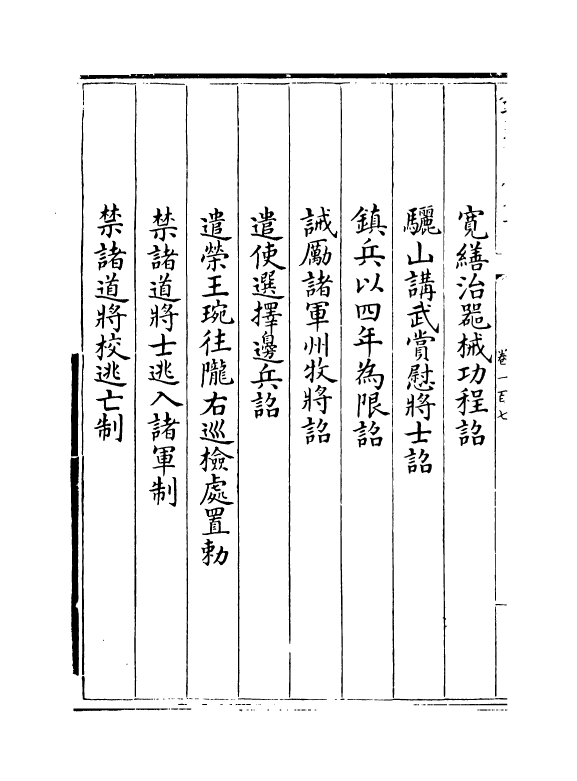 寛繕治噐械功程詔
驪山講武賞慰將士詔
鎮兵以四年為限詔
誡勵諸軍州牧將詔
遣使選擇邊兵詔
遣榮王琬往隴右巡檢處置勅
禁諸道將士逃入諸軍制
禁諸道將校逃亡制
卷一百七